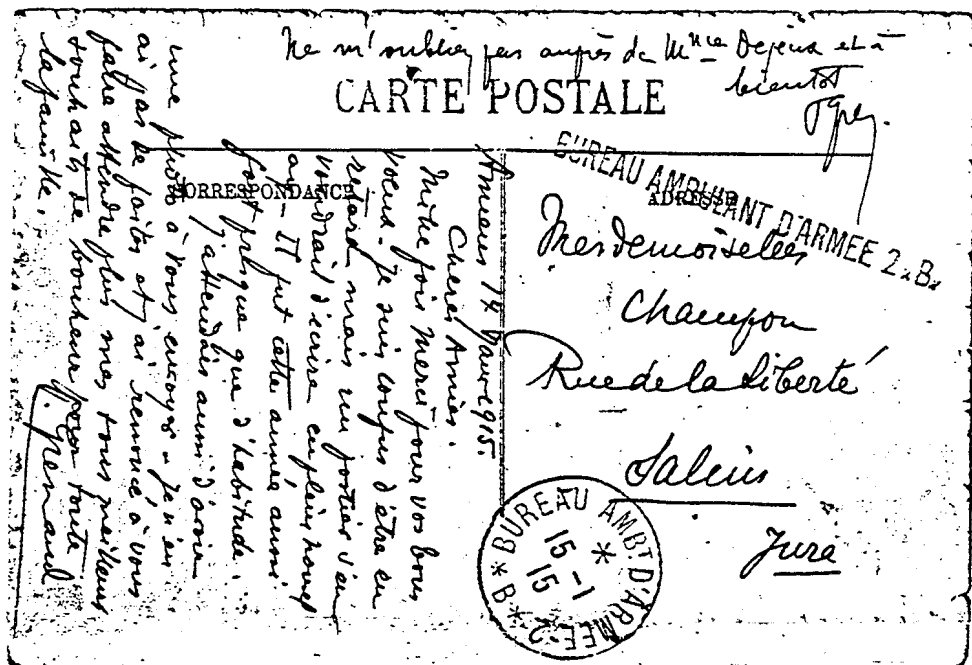 Ne m'oubliez pas auprès de Mme Dejeux et à
bientôt
CARTE POSTALE
CORRESPONDANCE
ADRESSE
BUREAU AMBULANT D'ARMEE 2.B.
Amiens 14 Janv 1915.
Chères Amies.
Mille fois merci pour vos bons
voeux. Je suis confus d'être en
retard mais un
voudrait écrire
an. Il fut cette année aussi
fort presque que d'habitude.
J'attendais aussi d'avoir
une photo à vous envoyer. Je n'en
ai pas de faites et j'ai renoncé à vous
faire attendre plus mes tous meilleurs
souhaits de bonheur pour toute
la famille.
Mesdemoiselles
Champon
Rue de la Liberté
Salins
Jura
BUREAU AMBT D'ARMEE * 2 * B *
15 - 1
15